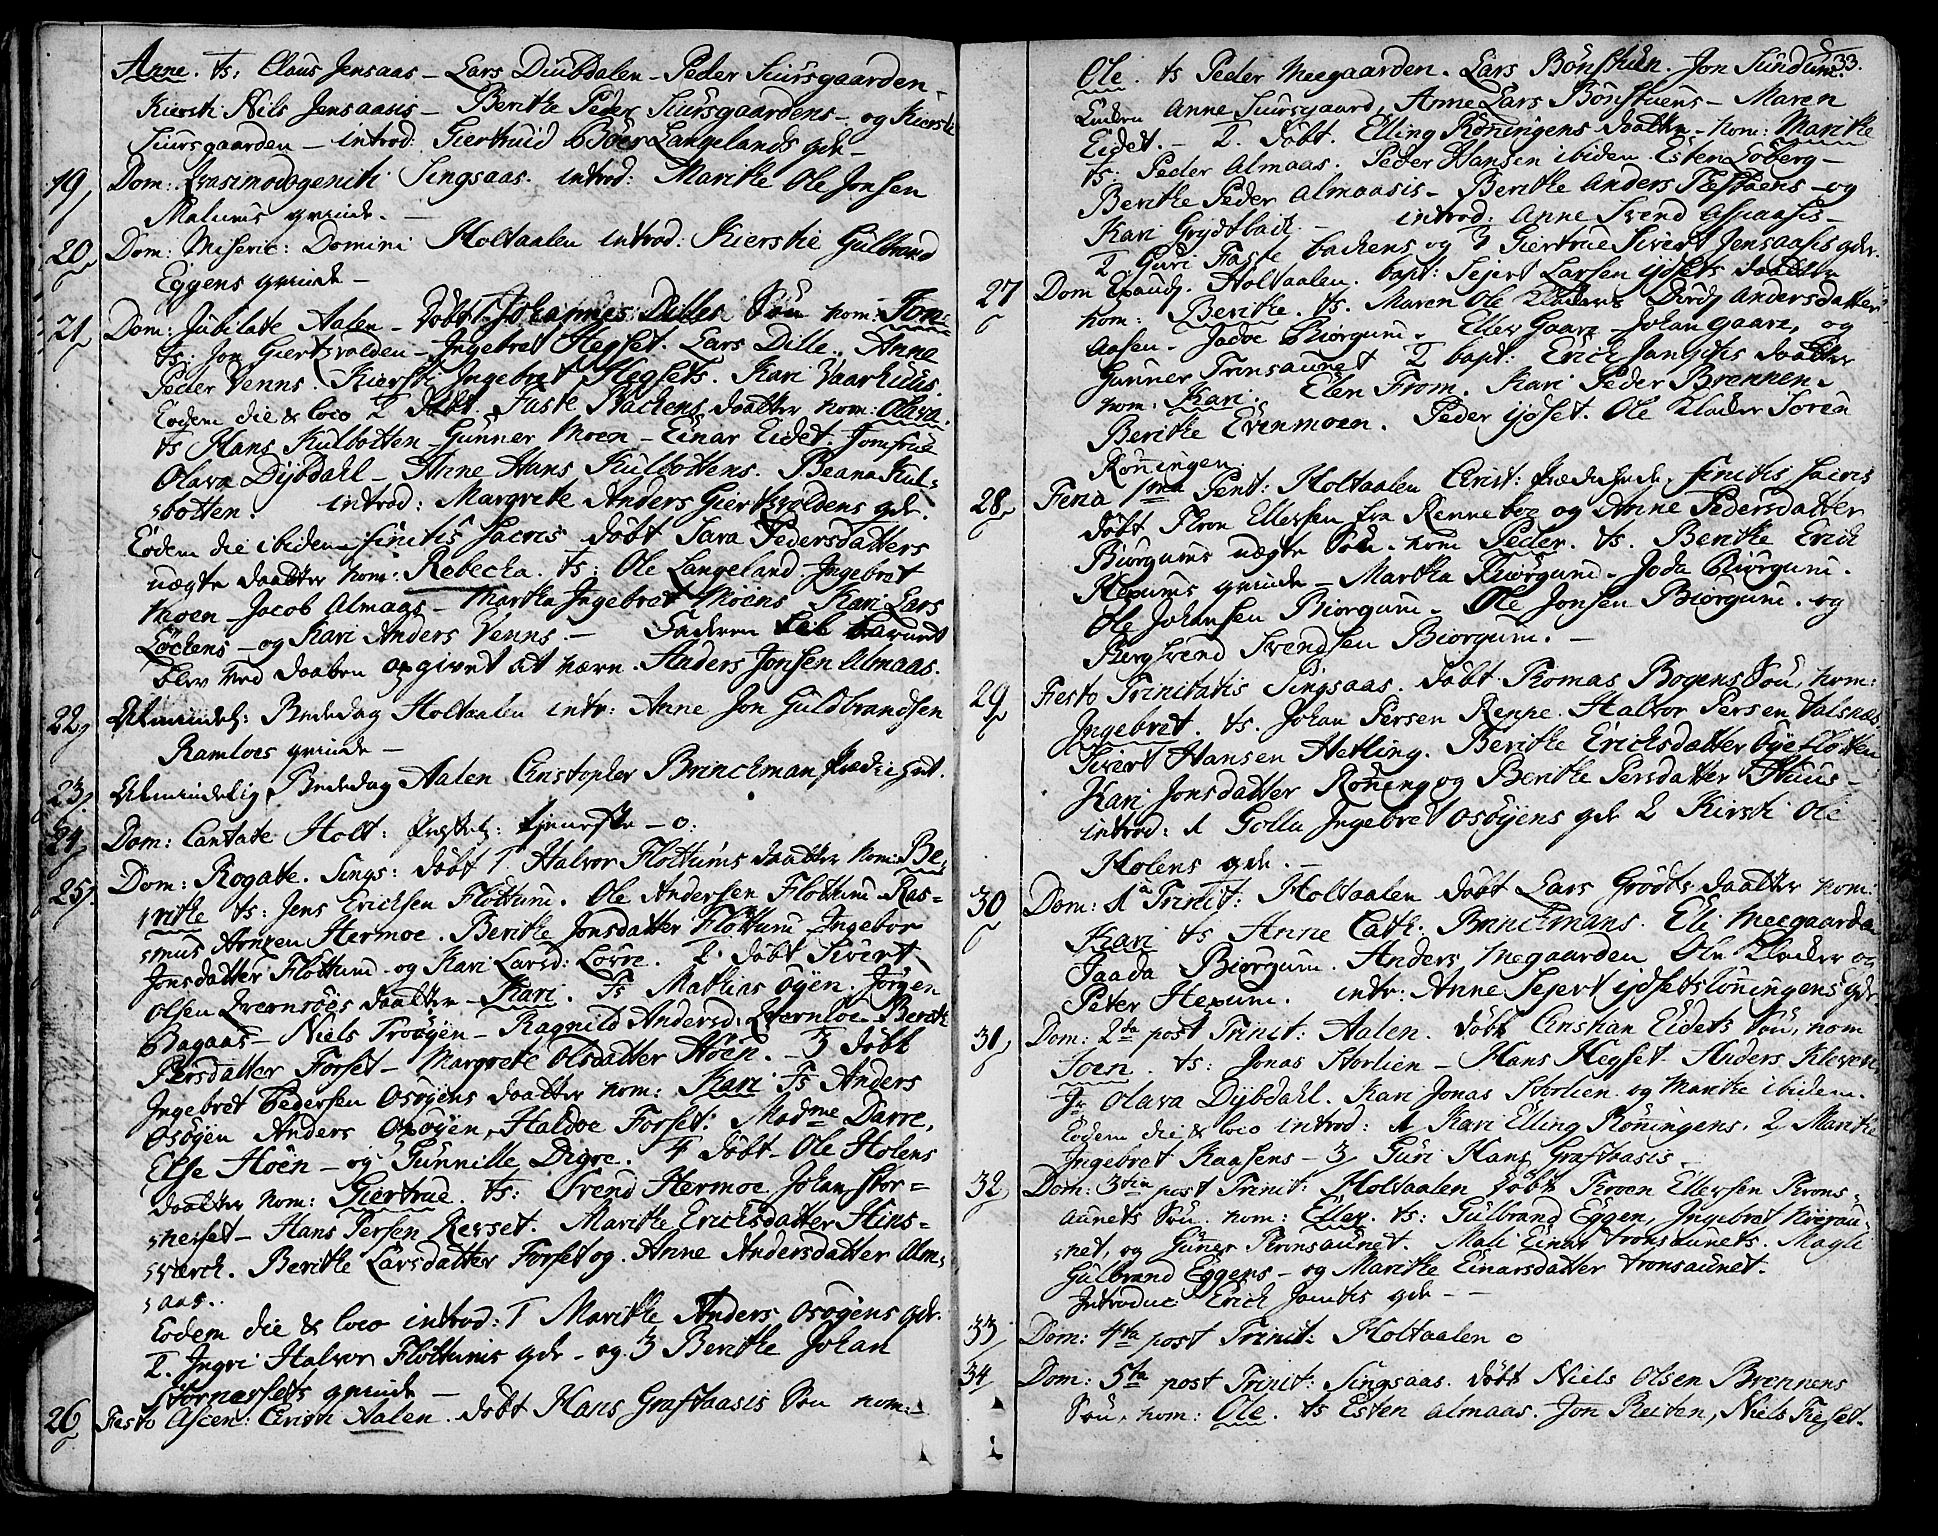 Anne. ts: Claus Jensaas - Lars Duubdalen - Peder Suursgaarden -
Kiersti Niels Jensaasis - Berithe Peder Suursgaardens - og Kiersti
Suursgaarden - introd: Giertruid Langelands qde -
19 Dom: Quasimodogeniti Singsaas. introd: Marithe Ole Jonsen
Malums qvinde. -
20 Dom: Miseric: Domini Holtaalen introd: Kierstie Gulbrand
Eggens qvinde -
21 Dom: Jubilate Aalen - Döbt Johannes Dilles Sön nom: Jon
ts: Jon Giertzvolden - Ingebret Hegset. Lars Dille. Anne
Peder Venns. Kiersti Ingebret Hegsets. Kari Vaarhuus.
Eodem die & loco 2 döbt. Faste Backens daatter nom: Olava.
ts Hans Kulbotten - Gunner Moen - Einar Eidet. Jomfrue
Olava Dijbdahl - Anne Hans Kulbottens. Beana Kul=
=botten. introd: Margrete Anders Giertzvoldens qde.
Eodem die ibidem finitis sacris döbt Sara Pedersdatters
uægte daatter nom: Rebecka. ts: Ole Langeland Ingebret
Moen - Jacob Almaas - Martha Ingebret Moens Kari Lars
Löckens - og Kari Anders Venns. - Faderen til barnet
blev ved daaben opgivet at være Anders Jonsen Almaas.
22 Almindel: Bededag Holtaalen intr: Anne Jon Guldbrandsen
Ramloes qvinde -
23 Almindelig Bededag Aalen Christopher Brinckman prædichet.
24 Dom: Cantate Holt: tjeneste - 0.
25 Dom: Rogate. Sings: döbt 1 Halvor Flöttums daatter nom: Be=
=rithe ts: Jens Ericksen Flöttum. Ole Andersen Flöttum Ras=
=mus Arntzen Hermoe. Berithe Jonsdatter Flöttum Ingebor
Jonsdatter Flöttum - og Kari Larsd: Lovre. 2. döbt Sivert
Olsen Qvernröes daatter - Kari. Ts Mathias öyen. Jörgen
Bagaas - Niels Troöyen - Ragnild Andersd: Qvernloe Berith
Persdatter Forset - Margrete Olsdatter Höen. - 3 döbt
Ingebret Pedersen Osöyens daatter nom: Kari Ts Anders
Osöyen Anders Osöyen, Haldoe Forset: Madme Darre,
Else Höen - og Gunnille Digre. 4 döbt - Ole Holens
daatter nom: Giertrue. ts: Svend Hermoe Johan Stor=
=nesset - Hans Persen Rerset. Marithe Ericksdatter Hins=
=værch. Berithe Larsdatter Forset og Anne Andersdatter Alm=
=aas.
Eodem die & loco introd: 1 Marithe Anders Osöyens qde.
2. Ingri Halvor Flöttums qde - og 3 Berithe Johan
Stornessets qvinde -
26 Festo Ascen: Christi Aalen. döbt Hans Graftaasis Sön nom: -
33.
Ole. ts Peder Meegaarden. Lars Bönshuen. Jon Sundum.
Anne Suursgaard, Anne Lars Bönstuens - Maren
Eidet. - 2. döbt. Elling Röningens daatter - nom: Marithe
ts: Peder Almaas. Peder Hansen ibidem Esten Loberg -
Berithe Peder Almaasis - Berithe Anders - og
Kari Grydtback - introd: Anne Svend Aspaasis -
2 Guri Faste backens og 3 Giertrue Sivert Jensaasis qde.
27 Dom Exaudj. Holtaalen. bapt: Sejert Larsen ijdsets daatter
nom: Berithe. ts. Maren Ole Kladers Andersdatter
Aasen - Jodoe Biörgum. Eller Gaare Johan Gaare, og
Gunner Tronsaunet 2 bapt: Erick Jamtis daatter
nom. Kari. Elen From. Kari Peder Brennen.
Berithe Evenmoen. Peder ijdset. Ole Klader Soren
Röningen.
28 Feria 1ma Pent: Holtaalen Christ: prædichede. finitis sacris
döbt Thron Ellersen fra Renneboe og Anne Pedersdatter
Biörgums uægte Sön. nom Peder. ts. Berithe Erick
Hexums qvinde - Martha Biörgum - Joda Biörgum.
Ole Johansen Biörgum - Ole Jonsen Biörgum. og
Berg svend Svendsen Biörgum. -
29 Festo Trinitatis Singsaas. döbt Thomas Bogens Sön, nom:
Ingebret. ts. Johan Persen Reppe. Halvor Persen Valsnæs
Sivert Hansen Hetling. Berithe Ericksdatter byeflötten
Kari Jonsdatter Röning og Berithe Persdatter Huus -
introd: 1 Golla Ingebret Osöyens qde 2 Kirsti Ole
Holens qde. -
30 Dom: 1a Trinit: Holtaalen döbt Lars Gröds daatter nom:
Kari ts Anne Cath: Brinckmans. Eli Meegaarden
Jaada Biörgum. Anders Megaarden Ole Klader og
Peter Hexum. intr: Anne Sejert ijdsetslöningens qde
31 Dom: 2da post Trinit: Aalen. döbt Cristian Eidets Sön, nom
Joen. ts: Jonas Storlien - Hans Hegset Anders Kleven
Jr Olava Dijbdahl. Kari Jonas Storlien og Marite ibidem.
Eodem die & loco introd: 1 Kari Elling Röningens. 2 Marithe
Ingebret Kaasens - 3 Guri Hans Graftaasis
32 Dom: 3tia post Trinit: Holtaalen döbt Throen Ellersen Throns=
aunets Sön. nom: Eller. ts: Gulbrand Eggen, Ingebret Hovrau=
=net, og Guner Thronsaunet. Mali Einar Tronsaunets. Magli
Gulbrand Eggens - og Marithe Einarsdatter Tronsaunet.
Introduc Erick Jamtis qde - -
33 Dom: 4ta post Trinit: Holtaalen 0
34 Dom: 5ta post Trinit: Singsaas. döbt Niels Olsen Brennens
Sön, nom: Ole. ts Esten Almaas. Jon Reiten, Niels Fieset.